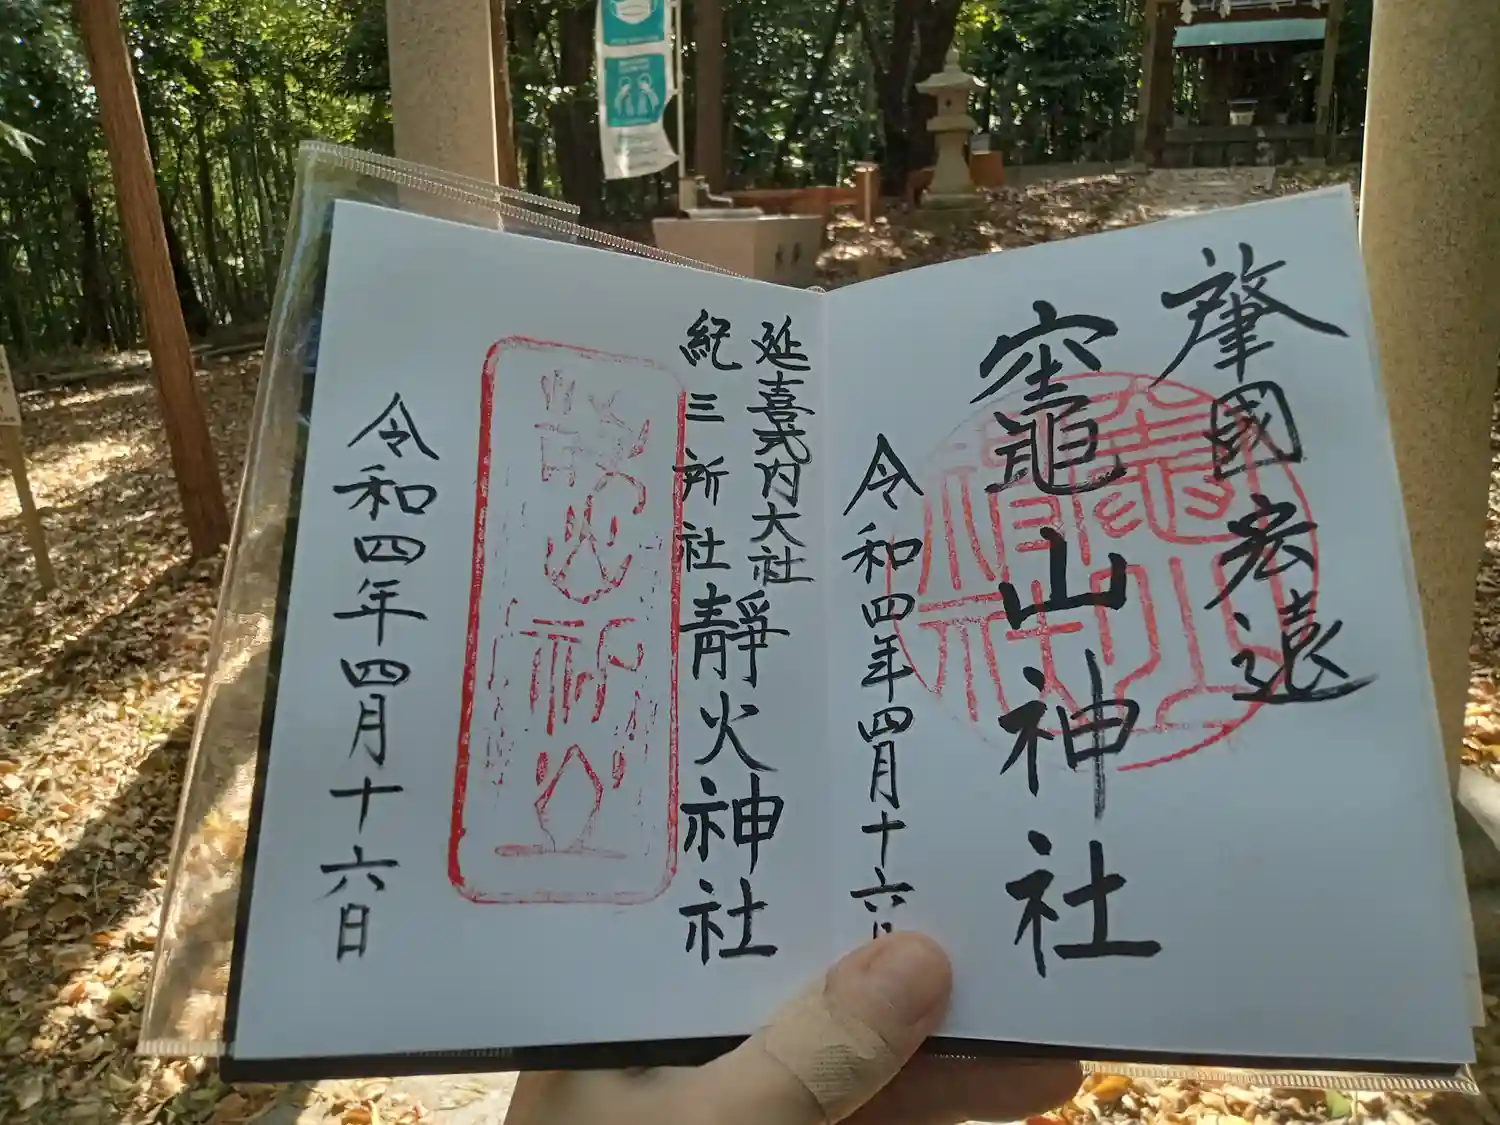 肇國宏遠
竈山神社
令和四年四月十六日
延喜式内大社
紀三所社靜火神社
令和四年四月十六日